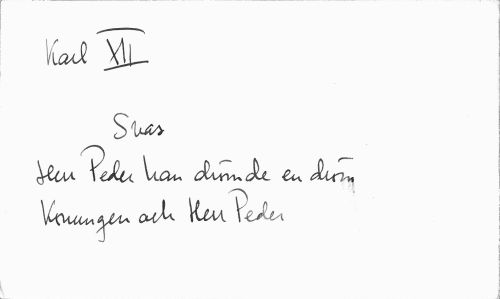 Karl XII
Svar
Herr Peder han drömde en dröm
Konungen och Herr Peder